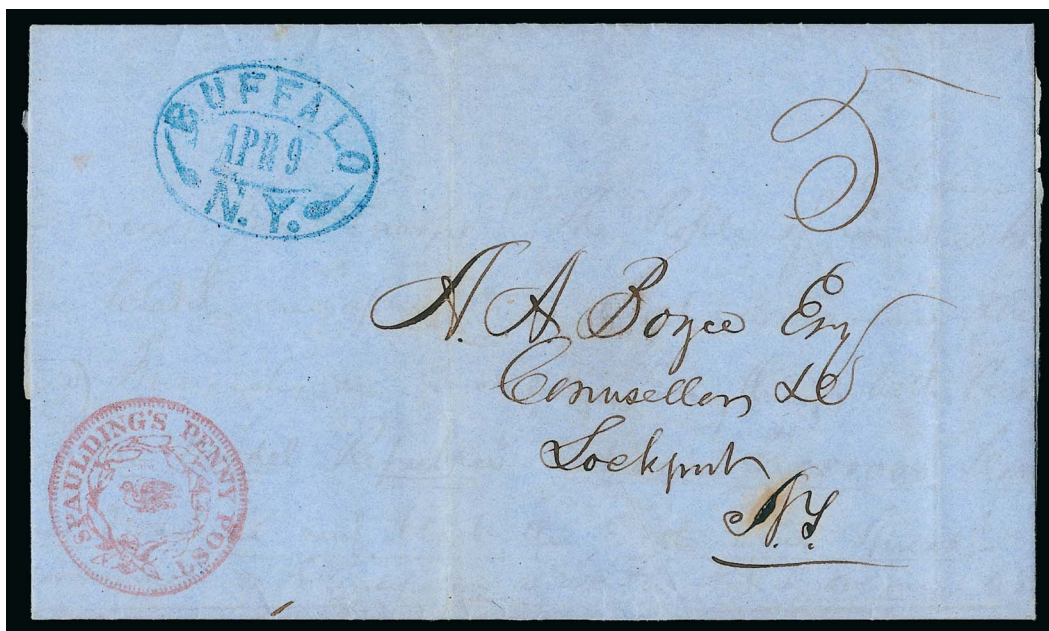 BUFFALO
APR 9
N.Y.
5
A. A Boyce Esq
Counsellor &c
Lockport
N.Y.
SPAULDING'S PENNY POST.